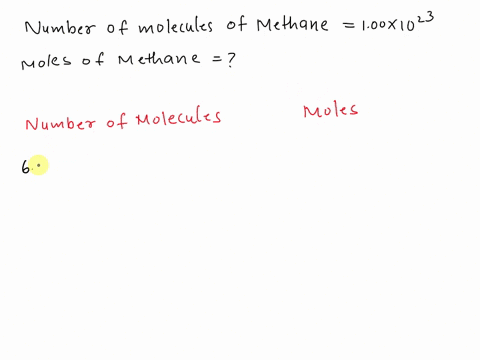 Number of molecules of Methane = 1.00×10²³
Moles of Methane = ?
Number of Molecules Moles
6.